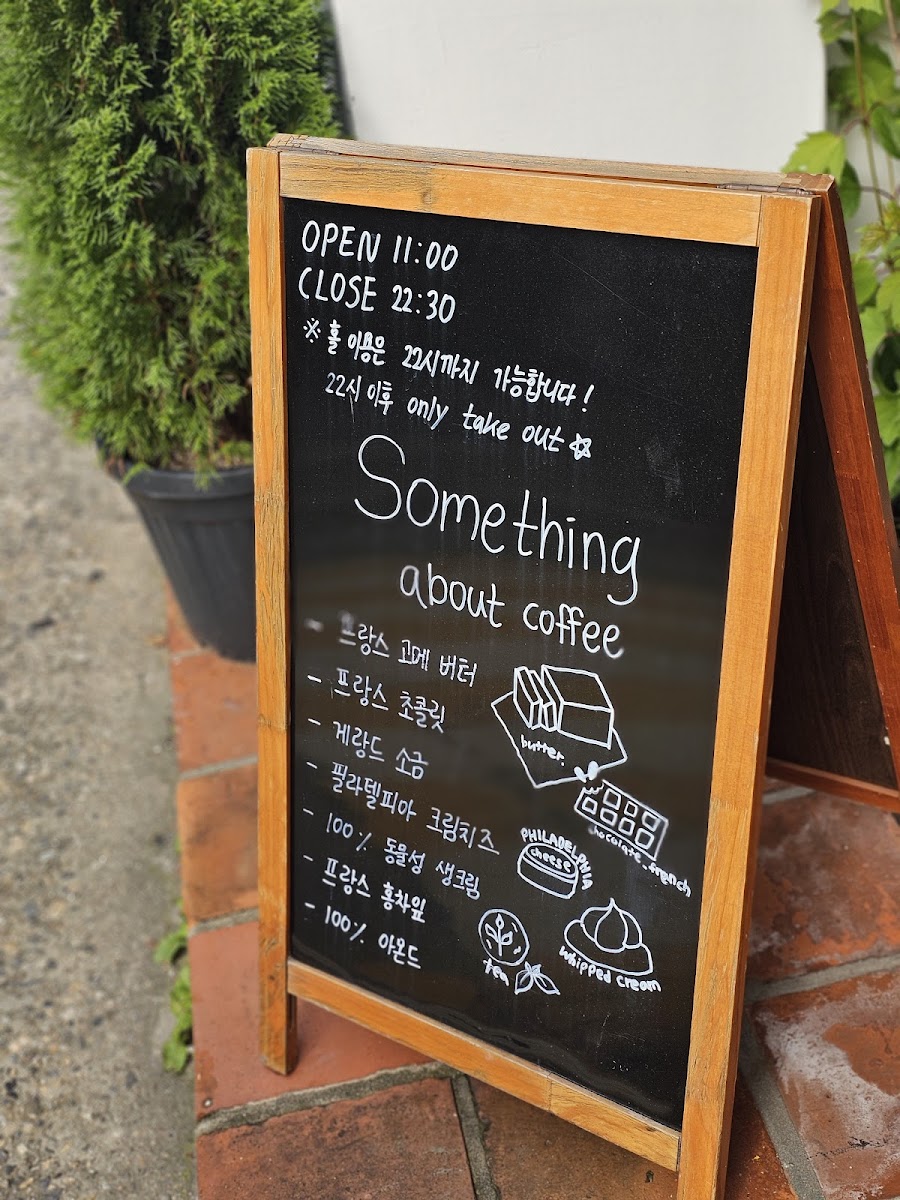 OPEN 11:00
CLOSE 22:30
※ 홀 이용은 22시까지 가능합니다!
22시 이후 only take out ☆
Something
about coffee
- 프랑스 고메 버터
- 프랑스 초콜릿
- 게랑드 소금
- 필라델피아 크림치즈
- 100% 동물성 생크림
- 프랑스 홍차잎
- 100% 아몬드
butter.
chocolate.french
PHILADELPHIA
cheese
tea
whipped cream